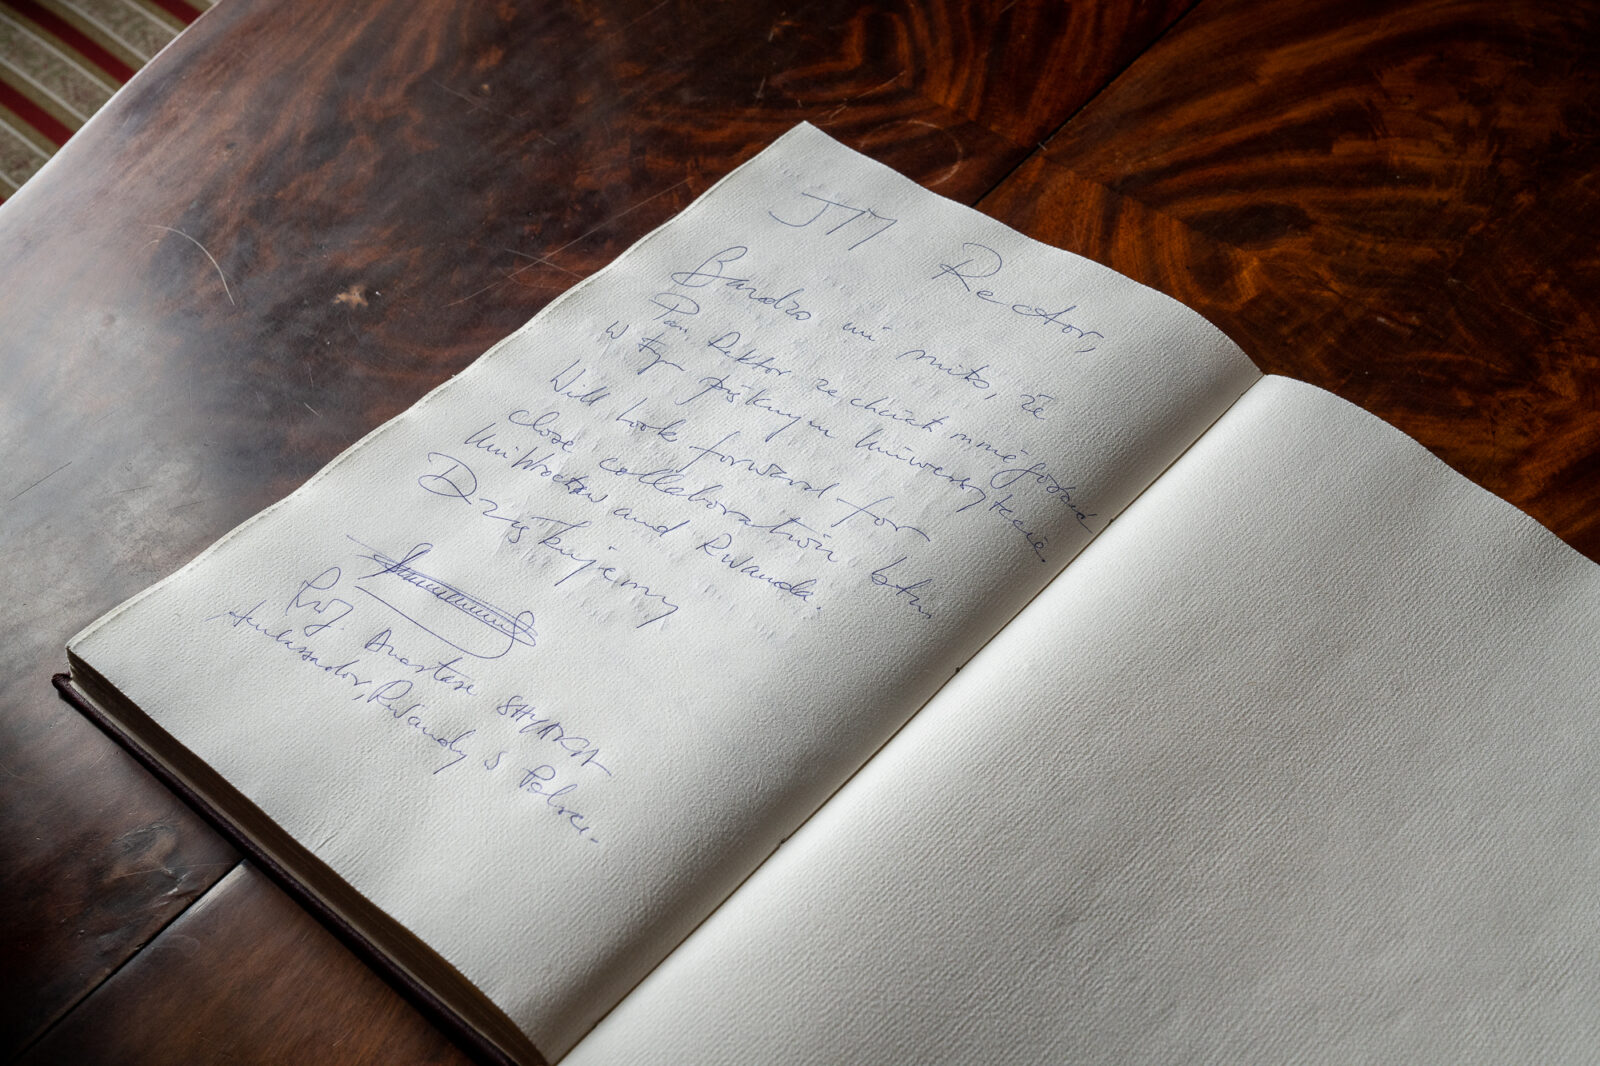 JM Rector,
Bardzo mi miło, że
Pan Rektor zechciał mnie gościć
w tym pięknym Uniwersytecie.
Will look forward for
close collaboration btn
Uni Wrocław and Rwanda.
Dziękujemy
Prof. Anastase SHYAKA
Ambassador, Rwandy w Polsce.